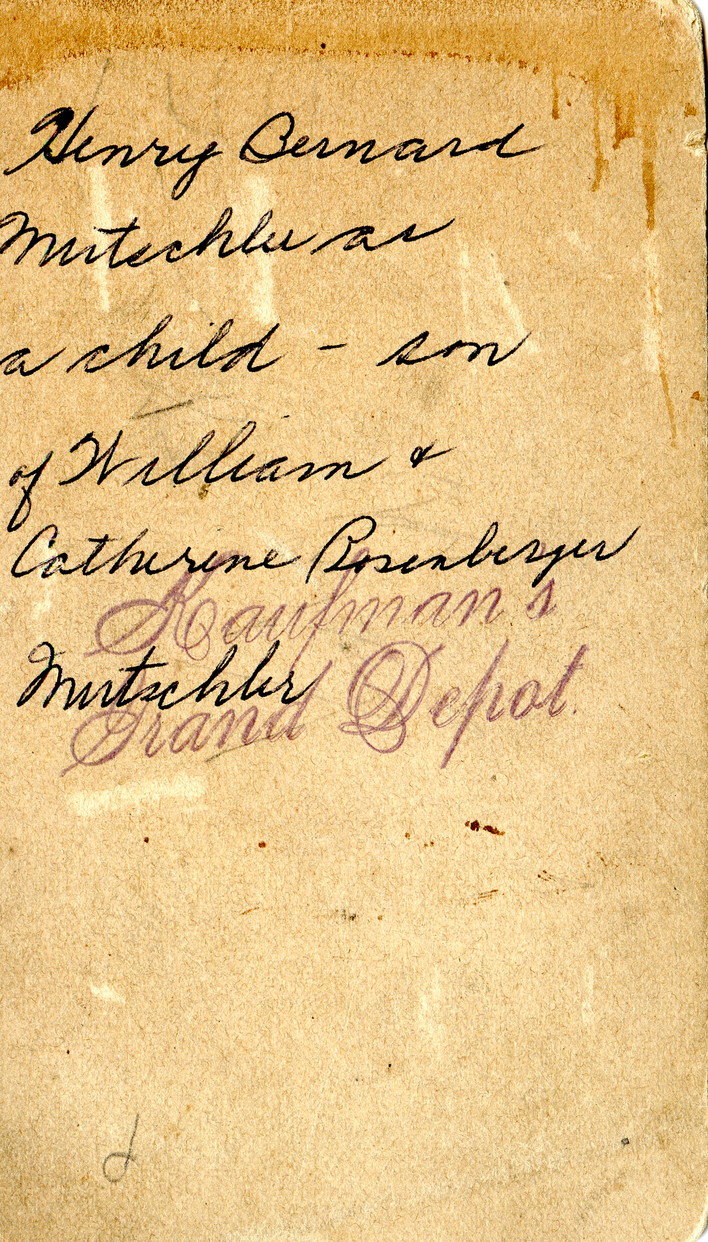 Henry Bernard
Mutschler as
a child - son
of William &
Catherine Rosenberger
Kaufman's
Mutschler
Grand Depot.